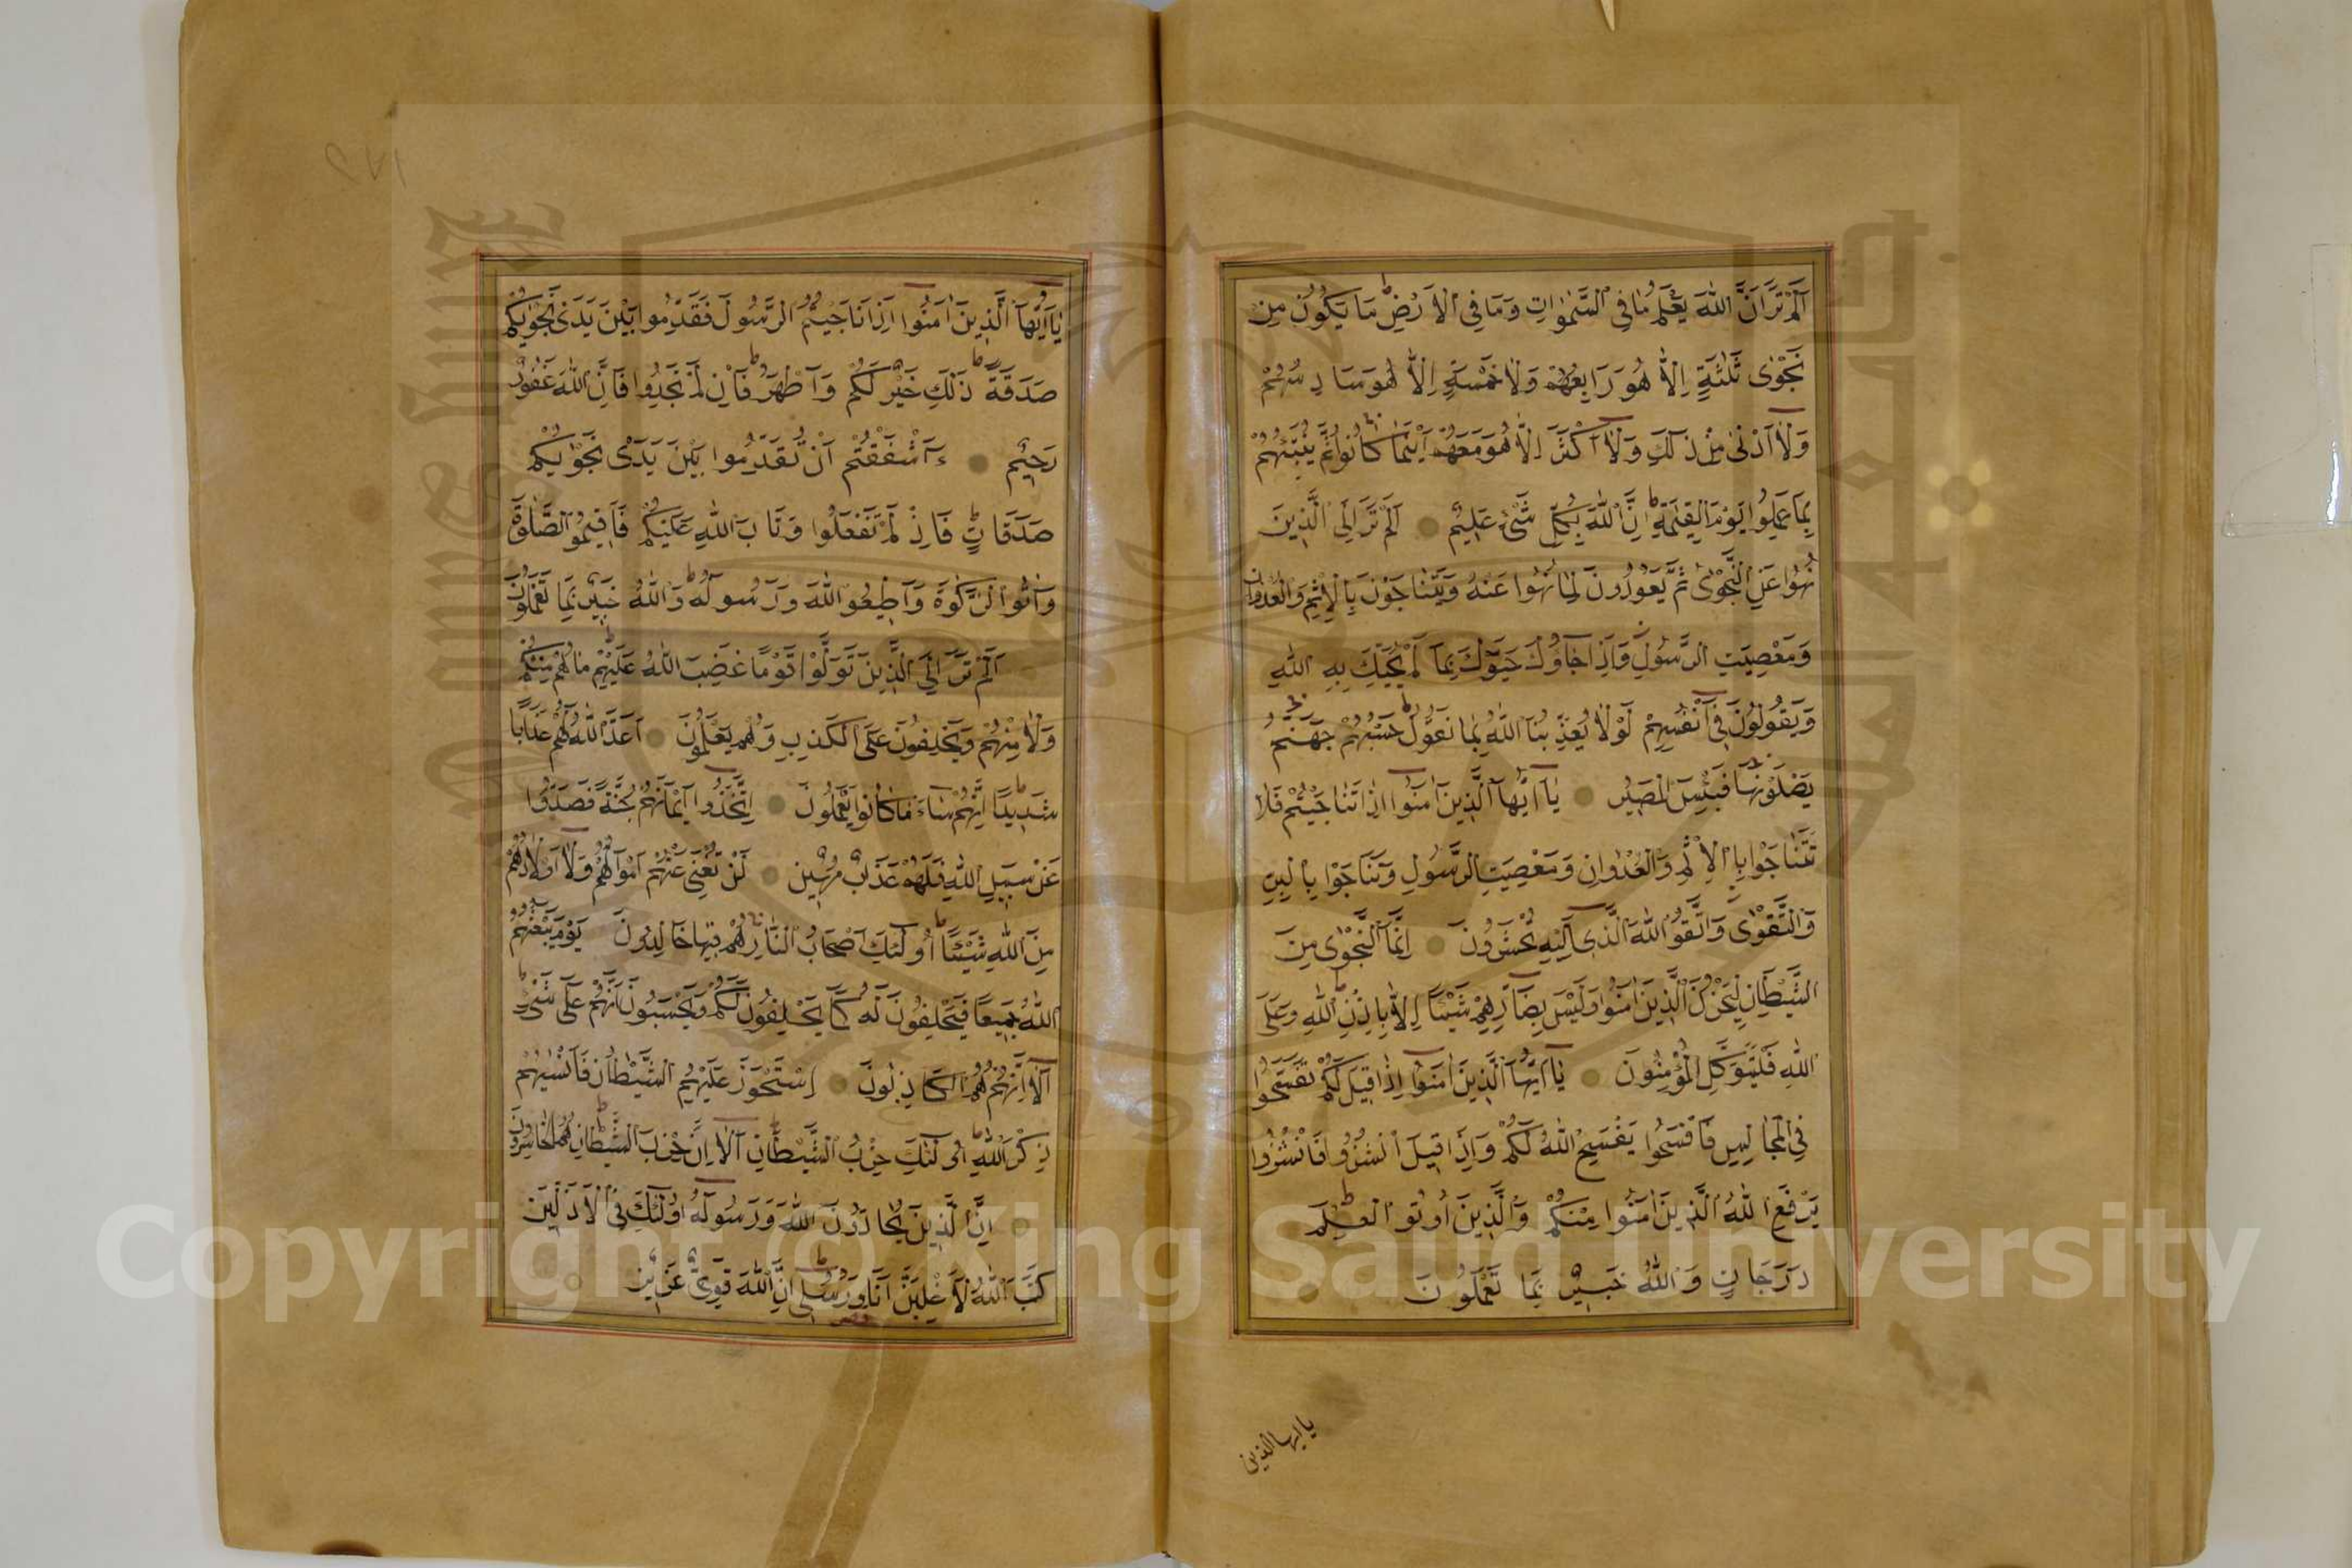 اَلَمْ تَرَ اَنَّ اللّٰهَ يَعْلَمُ مَا فِي السَّمٰوَاتِ وَمَا فِي الْاَرْضِ مَا يَكُونُ مِنْ
نَجْوٰى ثَلٰثَةٍ اِلَّا هُوَ رَابِعُهُمْ وَلَا خَمْسَةٍ اِلَّا هُوَ سَادِسُهُمْ
وَلَا اَدْنٰى مِنْ ذٰلِكَ وَلَا اَكْثَرَ اِلَّا هُوَ مَعَهُمْ اَيْنَمَا كَانُوا ثُمَّ يُنَبِّئُهُمْ
بِمَا عَمِلُوا يَوْمَ الْقِيٰمَةِ اِنَّ اللّٰهَ بِكُلِّ شَيْءٍ عَلِيمٌ اَلَمْ تَرَ اِلَى الَّذِينَ
نُهُوا عَنِ النَّجْوٰى ثُمَّ يَعُودُونَ لِمَا نُهُوا عَنْهُ وَيَتَنَاجَوْنَ بِالْاِثْمِ وَالْعُدْوَانِ
وَمَعْصِيَتِ الرَّسُولِ وَاِذَا جَاؤُكَ حَيَّوْكَ بِمَا لَمْ يُحَيِّكَ بِهِ اللّٰهُ
وَيَقُولُونَ فِي اَنْفُسِهِمْ لَوْلَا يُعَذِّبُنَا اللّٰهُ بِمَا نَقُولُ حَسْبُهُمْ جَهَنَّمُ
يَصْلَوْنَهَا فَبِئْسَ الْمَصِيرُ يَا اَيُّهَا الَّذِينَ اٰمَنُوا اِذَا تَنَاجَيْتُمْ فَلَا
تَتَنَاجَوْا بِالْاِثْمِ وَالْعُدْوَانِ وَمَعْصِيَتِ الرَّسُولِ وَتَنَاجَوْا بِالْبِرِّ
وَالتَّقْوٰى وَاتَّقُوا اللّٰهَ الَّذِي اِلَيْهِ تُحْشَرُونَ اِنَّمَا النَّجْوٰى مِنَ
الشَّيْطَانِ لِيَحْزُنَ الَّذِينَ اٰمَنُوا وَلَيْسَ بِضَارِّهِمْ شَيْئًا اِلَّا بِاِذْنِ اللّٰهِ وَعَلَى
اللّٰهِ فَلْيَتَوَكَّلِ الْمُؤْمِنُونَ يَا اَيُّهَا الَّذِينَ اٰمَنُوا اِذَا قِيلَ لَكُمْ تَفَسَّحُوا
فِي الْمَجَالِسِ فَافْسَحُوا يَفْسَحِ اللّٰهُ لَكُمْ وَاِذَا قِيلَ انْشُزُوا فَانْشُزُوا
يَرْفَعِ اللّٰهُ الَّذِينَ اٰمَنُوا مِنْكُمْ وَالَّذِينَ اُوتُوا الْعِلْمَ
دَرَجَاتٍ وَاللّٰهُ خَبِيرٌ بِمَا تَعْمَلُونَ
يا ايها الذين
يَا اَيُّهَا الَّذِينَ اٰمَنُوا اِذَا نَاجَيْتُمُ الرَّسُولَ فَقَدِّمُوا بَيْنَ يَدَيْ نَجْوٰيكُمْ
صَدَقَةً ذٰلِكَ خَيْرٌ لَكُمْ وَاَطْهَرُ فَاِنْ لَمْ تَجِدُوا فَاِنَّ اللّٰهَ غَفُورٌ
رَحِيمٌ ءَاَشْفَقْتُمْ اَنْ تُقَدِّمُوا بَيْنَ يَدَيْ نَجْوٰيكُمْ
صَدَقَاتٍ فَاِذْ لَمْ تَفْعَلُوا وَتَابَ اللّٰهُ عَلَيْكُمْ فَاَقِيمُوا الصَّلٰوةَ
وَاٰتُوا الزَّكٰوةَ وَاَطِيعُوا اللّٰهَ وَرَسُولَهُ وَاللّٰهُ خَبِيرٌ بِمَا تَعْمَلُونَ
اَلَمْ تَرَ اِلَى الَّذِينَ تَوَلَّوْا قَوْمًا غَضِبَ اللّٰهُ عَلَيْهِمْ مَا هُمْ مِنْكُمْ
وَلَا مِنْهُمْ وَيَحْلِفُونَ عَلَى الْكَذِبِ وَهُمْ يَعْلَمُونَ اَعَدَّ اللّٰهُ لَهُمْ عَذَابًا
شَدِيدًا اِنَّهُمْ سَاءَ مَا كَانُوا يَعْمَلُونَ اِتَّخَذُوا اَيْمَانَهُمْ جُنَّةً فَصَدُّوا
عَنْ سَبِيلِ اللّٰهِ فَلَهُمْ عَذَابٌ مُهِينٌ لَنْ تُغْنِيَ عَنْهُمْ اَمْوَالُهُمْ وَلَا اَوْلَادُهُمْ
مِنَ اللّٰهِ شَيْئًا اُولٰئِكَ اَصْحَابُ النَّارِ هُمْ فِيهَا خَالِدُونَ يَوْمَ يَبْعَثُهُمُ
اللّٰهُ جَمِيعًا فَيَحْلِفُونَ لَهُ كَمَا يَحْلِفُونَ لَكُمْ وَيَحْسَبُونَ اَنَّهُمْ عَلٰى شَيْءٍ
اَلَا اِنَّهُمْ هُمُ الْكَاذِبُونَ اِسْتَحْوَذَ عَلَيْهِمُ الشَّيْطَانُ فَاَنْسٰيهُمْ
ذِكْرَ اللّٰهِ اُولٰئِكَ حِزْبُ الشَّيْطَانِ اَلَا اِنَّ حِزْبَ الشَّيْطَانِ هُمُ الْخَاسِرُونَ
اِنَّ الَّذِينَ يُحَادُّونَ اللّٰهَ وَرَسُولَهُ اُولٰئِكَ فِي الْاَذَلِّينَ
كَتَبَ اللّٰهُ لَاَغْلِبَنَّ اَنَا وَرُسُلِي اِنَّ اللّٰهَ قَوِيٌّ عَزِيزٌ
Copyright © King Saud University